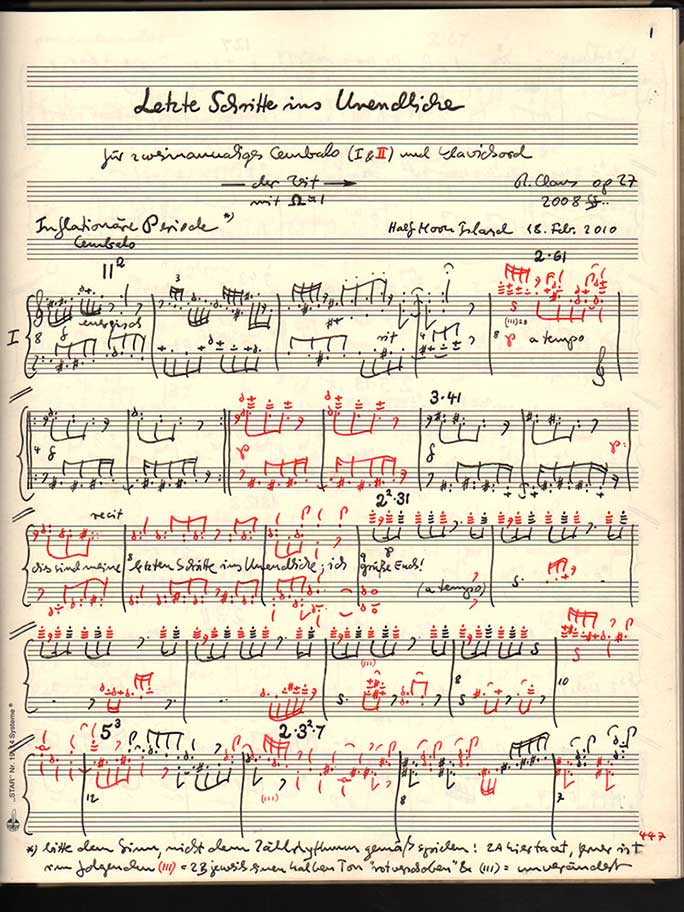 1
Letzte Schritte ins Unendliche
für zweimanualiges Cembalo (I & II) und Clavichord
— der Zeit →
mit Ω = 1
R. Claus op 27
2008 ff..
Inflationäre Periode *)
Cembalo
Half Moon Island 18. Febr. 2010
11²
2·61
I
3
energisch
rit
8
4
8
(III)=8
p
a tempo
3·41
4
p
p
recit
2²·31
dis sind meine letzten Schritte ins Unendliche; ich grüße Euch!
p
(a tempo)
(III)
8
10
5³
2·3²·7
12
(III)
8
7
447
*) bitte dem Sinn, nicht dem Zählrhythmus gemäß spielen! 2A hier tacet, ferner ist
im folgenden (III) = 2B jeweils einen halben Ton "rotverschoben" & (III) = unverändert
"STAR" Nr. 14 Systeme